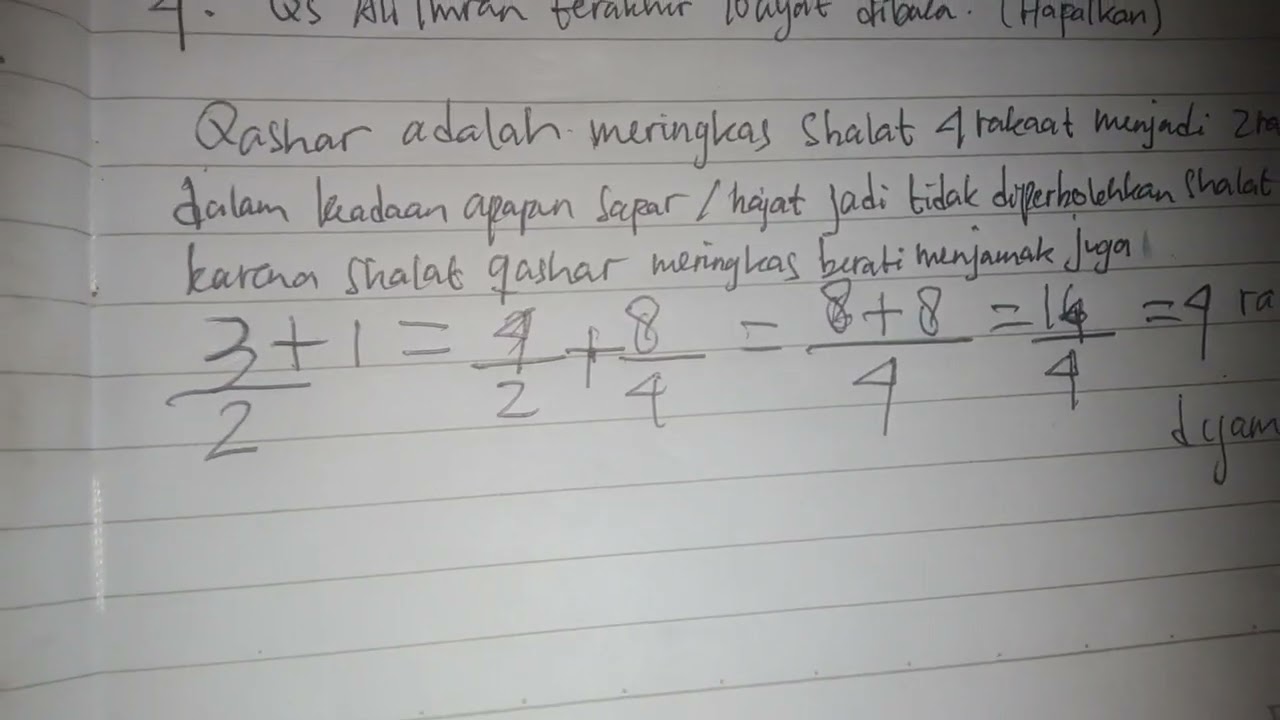 4. QS Ali Imran terakhir 10 ayat dibaca. (Hapalkan)
Qashar adalah meringkas shalat 4 rakaat menjadi 2 ra
dalam keadaan apapun sapar / hajat jadi tidak diperbolehkan shalat
karena shalat qashar meringkas berati menjamak juga
3+1 = 4 + 8 = 8+8 = 16 = 4 ra
2 2 4 4 4